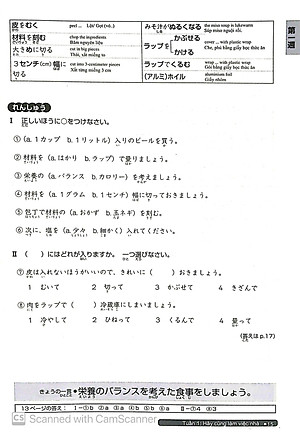 皮をむく
peel ... Lột/ Gọt (vỏ..)
材料を刻む
chop the ingredients
Băm nguyên liệu
大きめに切る
cut in big pieces
Thái, xắt miếng to
3センチ(cm)幅に切る
cut into 3-centimeter pieces
Xắt từng miếng 3 cm
みそ汁がぬるくなる
the miso soup is lukewarm
Súp miso nguội rồi.
ラップを かぶせる かける
cover ... with plastic wrap
Che, phủ bằng giấy bọc thức ăn
ラップでくるむ
wrap ... with plastic wrap
Gói bằng giấy bọc thức ăn
(アルミ)ホイル
aluminium foil
Giấy nhôm
第一週
れんしゅう
I 正しいほうに○をつけなさい。
①(a. 1カップ b. 1リットル)入りのビールを買う。
②材料を(a. はかり b. ラップ)で量りましょう。
③栄養の(a. バランス b. カロリー)を考えましょう。
④材料を(a. 1グラム b. 1センチ)幅に切っておきましょう。
⑤包丁で材料の(a. おかず b. 玉ネギ)を刻む。
⑥次に、塩を(a. 少々 b. 細かく)入れてください。
II ( )にはどれが入りますか。一つ選びなさい。
⑦皮は入れないほうがいいので、きれいに( )おきましょう。
1 むいて 2 切って 3 かぶせて 4 きざんで
⑧肉をラップで( )冷蔵庫にしまいましょう。
1 冷やして 2 ひねって 3 くるんで 4 量って
(答えはp.17)
きょうの一言 栄養のバランスを考えた食事をしましょう。
13ページの答え:
Tuần 1: Hãy cùng làm việc nhà
15
CS Scanned with CamScanner